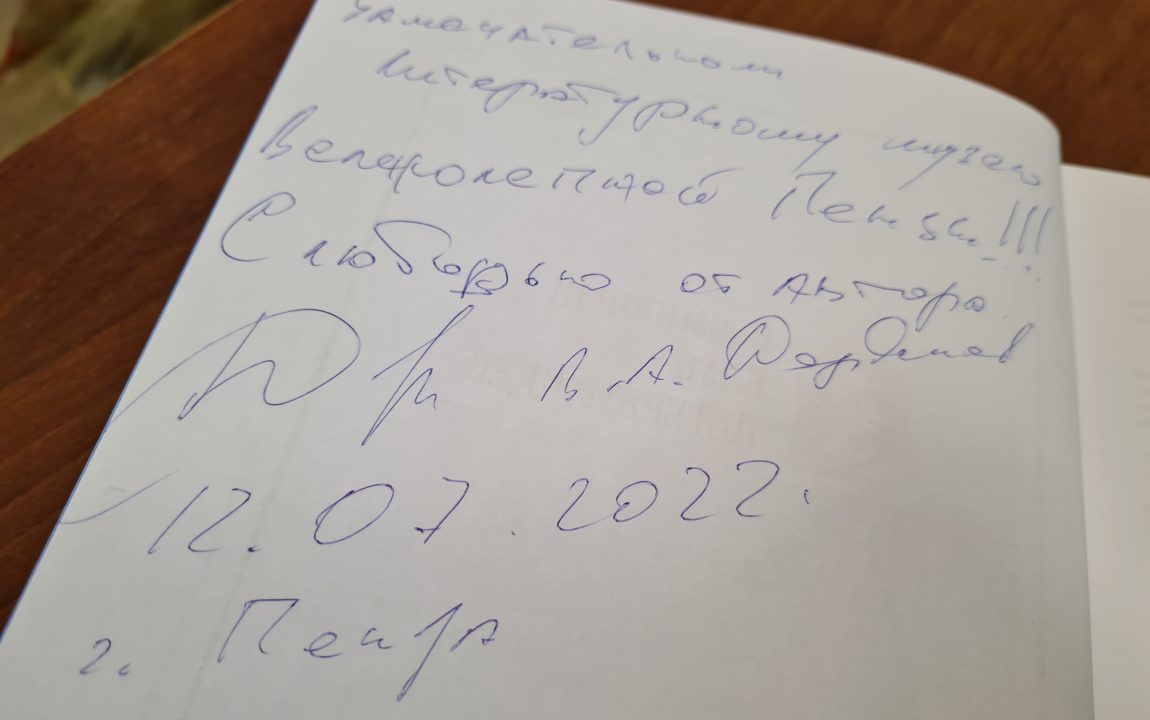 Замечательному
Литературному музею
Великолепной Пензы!!!
С любовью от автора
В.А.
12.07.2022.
г. Пенза